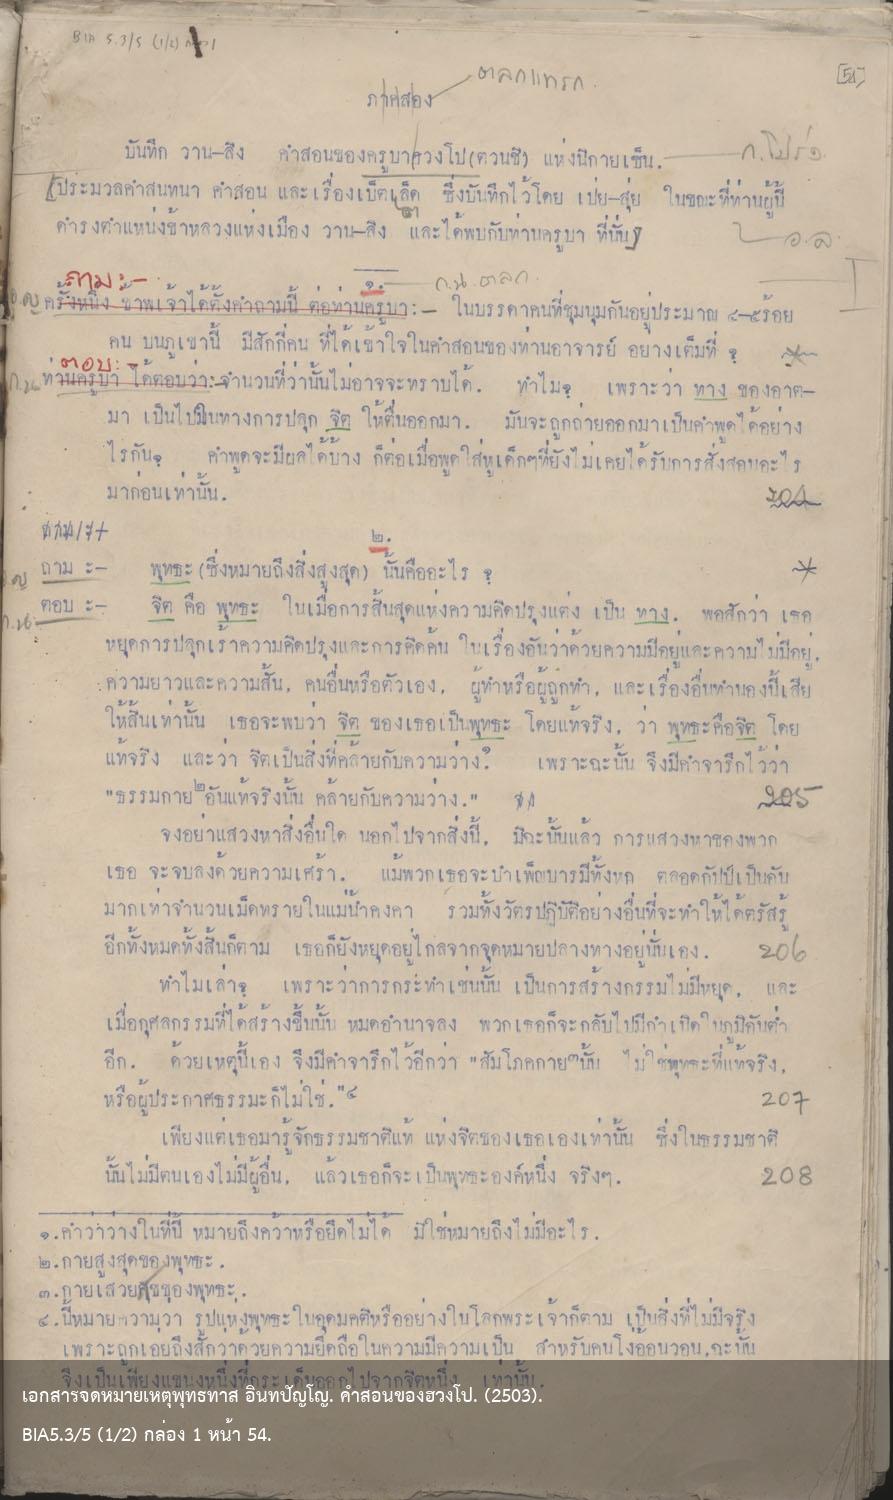 BIA 5.3/5 (1/2) กล่อง 1
[54]
ภาคสอง
บันทึก วาน-สิง คำสอนของครูบาฮวงโป(ตวนชี) แห่งนิกายเซ็น.
[ประมวลคำสนทนา คำสอน และเรื่องเบ็ตเล็ด ซึ่งบันทึกไว้โดย เปย-สุ่ย ในขณะที่ท่านผู้นี้
ดำรงตำแหน่งข้าหลวงแห่งเมือง วาน-สิง และได้พบกับท่านครูบา ที่นั่น]
๑.
ถาม:-
ครั้งหนึ่ง ข้าพเจ้าได้ตั้งคำถามนี้ ต่อท่านครูบา:- ในบรรดาคนที่ชุมนุมกันอยู่ประมาณ ๔-๕ร้อย
คน บนภูเขานี้ มีสักกี่คน ที่ได้เข้าใจในคำสอนของท่านอาจารย์ อยางเต็มที่ ?
ตอบ:-
ท่านครูบา ได้ตอบว่า:-จำนวนที่ว่านั้นไม่อาจจะทราบได้. ทำไม? เพราะว่า ทาง ของอาต-
มา เป็นไปในทางการปลุก จิต ให้ตื่นออกมา. มันจะถูกถ่ายออกมาเป็นคำพูดได้อย่าง
ไรกัน? คำพูดจะมีผลได้บ้าง ก็ต่อเมื่อพูดใส่หูเด็กๆที่ยังไม่เคยได้รับการสั่งสอนอะไร
มาก่อนเท่านั้น.
204
๒.
ถาม :- พุทธะ(ซึ่งหมายถึงสิ่งสูงสุด) นั้นคืออะไร ?
ตอบ :- จิต คือ พุทธะ ในเมื่อการสิ้นสุดแห่งความคิดปรุงแต่ง เป็น ทาง. พอสักว่า เธอ
หยุดการปลุกเร้าความคิดปรุงและการคิดค้น ในเรื่องอันว่าด้วยความมีอยู่และความไม่มีอยู่,
ความยาวและความสั้น, คนอื่นหรือตัวเอง, ผู้ทำหรือผู้ถูกทำ, และเรื่องอื่นทำนองนี้เสีย
ให้สิ้นเท่านั้น เธอจะพบว่า จิต ของเธอเป็นพุทธะ โดยแท้จริง, ว่า พุทธะคือจิต โดย
แท้จริง และว่า จิตเป็นสิ่งที่คล้ายกับความว่าง๑. เพราะฉะนั้น จึงมีคำจารึกไว้ว่า
"ธรรมกาย๒อันแท้จริงนั้น คล้ายกับความว่าง."
205
จงอย่าแสวงหาสิ่งอื่นใด นอกไปจากสิ่งนี้, มิฉะนั้นแล้ว การแสวงหาของพวก
เธอ จะจบลงด้วยความเศร้า. แม้พวกเธอจะบำเพ็ญบารมีทั้งหก ตลอดกัปป์เป็นอัน
มากเท่าจำนวนเม็ดทรายในแม่น้ำคงคา รวมทั้งวัตรปฏิบัติอย่างอื่นที่จะทำให้ได้ตรัสรู้
อีกทั้งหมดทั้งสิ้นก็ตาม เธอก็ยังหยุดอยู่ไกลจากจุดหมายปลางทางอยู่นั่นเอง.
206
ทำไมเล่า? เพราะว่าการกระทำเช่นนั้น เป็นการสร้างกรรมไม่มีหยุด, และ
เมื่อกุศลกรรมที่ได้สร้างขึ้นนั้น หมดอำนาจลง พวกเธอก็จะกลับไปมีกำเนิดในภูมิอันต่ำ
อีก. ด้วยเหตุนี้เอง จึงมีคำจารึกไว้อีกว่า "สัมโภคกาย๓นั้น ไม่ใช่พุทธะที่แท้จริง,
หรือผู้ประกาศธรรมะก็ไม่ใช่."๔
207
เพียงแต่เธอมารู้จักธรรมชาติแท้ แห่งจิตของเธอเองเท่านั้น ซึ่งในธรรมชาติ
นั้นไม่มีตนเองไม่มีผู้อื่น, แล้วเธอก็จะเป็นพุทธะองค์หนึ่ง จริงๆ.
208
๑.คำว่าว่างในที่นี้ หมายถึงคว้าหรือยึดไม่ได้ มิใช่หมายถึงไม่มีอะไร.
๒.กายสูงสุดของพุทธะ.
๓.กายเสวยสุขของพุทธะ.
๔.นี้หมายความว่า รูปแห่งพุทธะในอุดมคติหรืออย่างในโลกพระเจ้าก็ตาม เป็นสิ่งที่ไม่มีจริง
เพราะถูกเอ่ยถึงสักว่าด้วยความยึดถือในความมีความเป็น สำหรับคนโง่อ้อนวอน,ฉะนั้น
จึงเป็นเพียงแขนงหนึ่งที่กระเด็นออกไปจากจิตหนึ่ง เท่านั้น.
เอกสารจดหมายเหตุพุทธทาส อินทปัญโญ. คำสอนของฮวงโป. (2503).
BIA5.3/5 (1/2) กล่อง 1 หน้า 54.